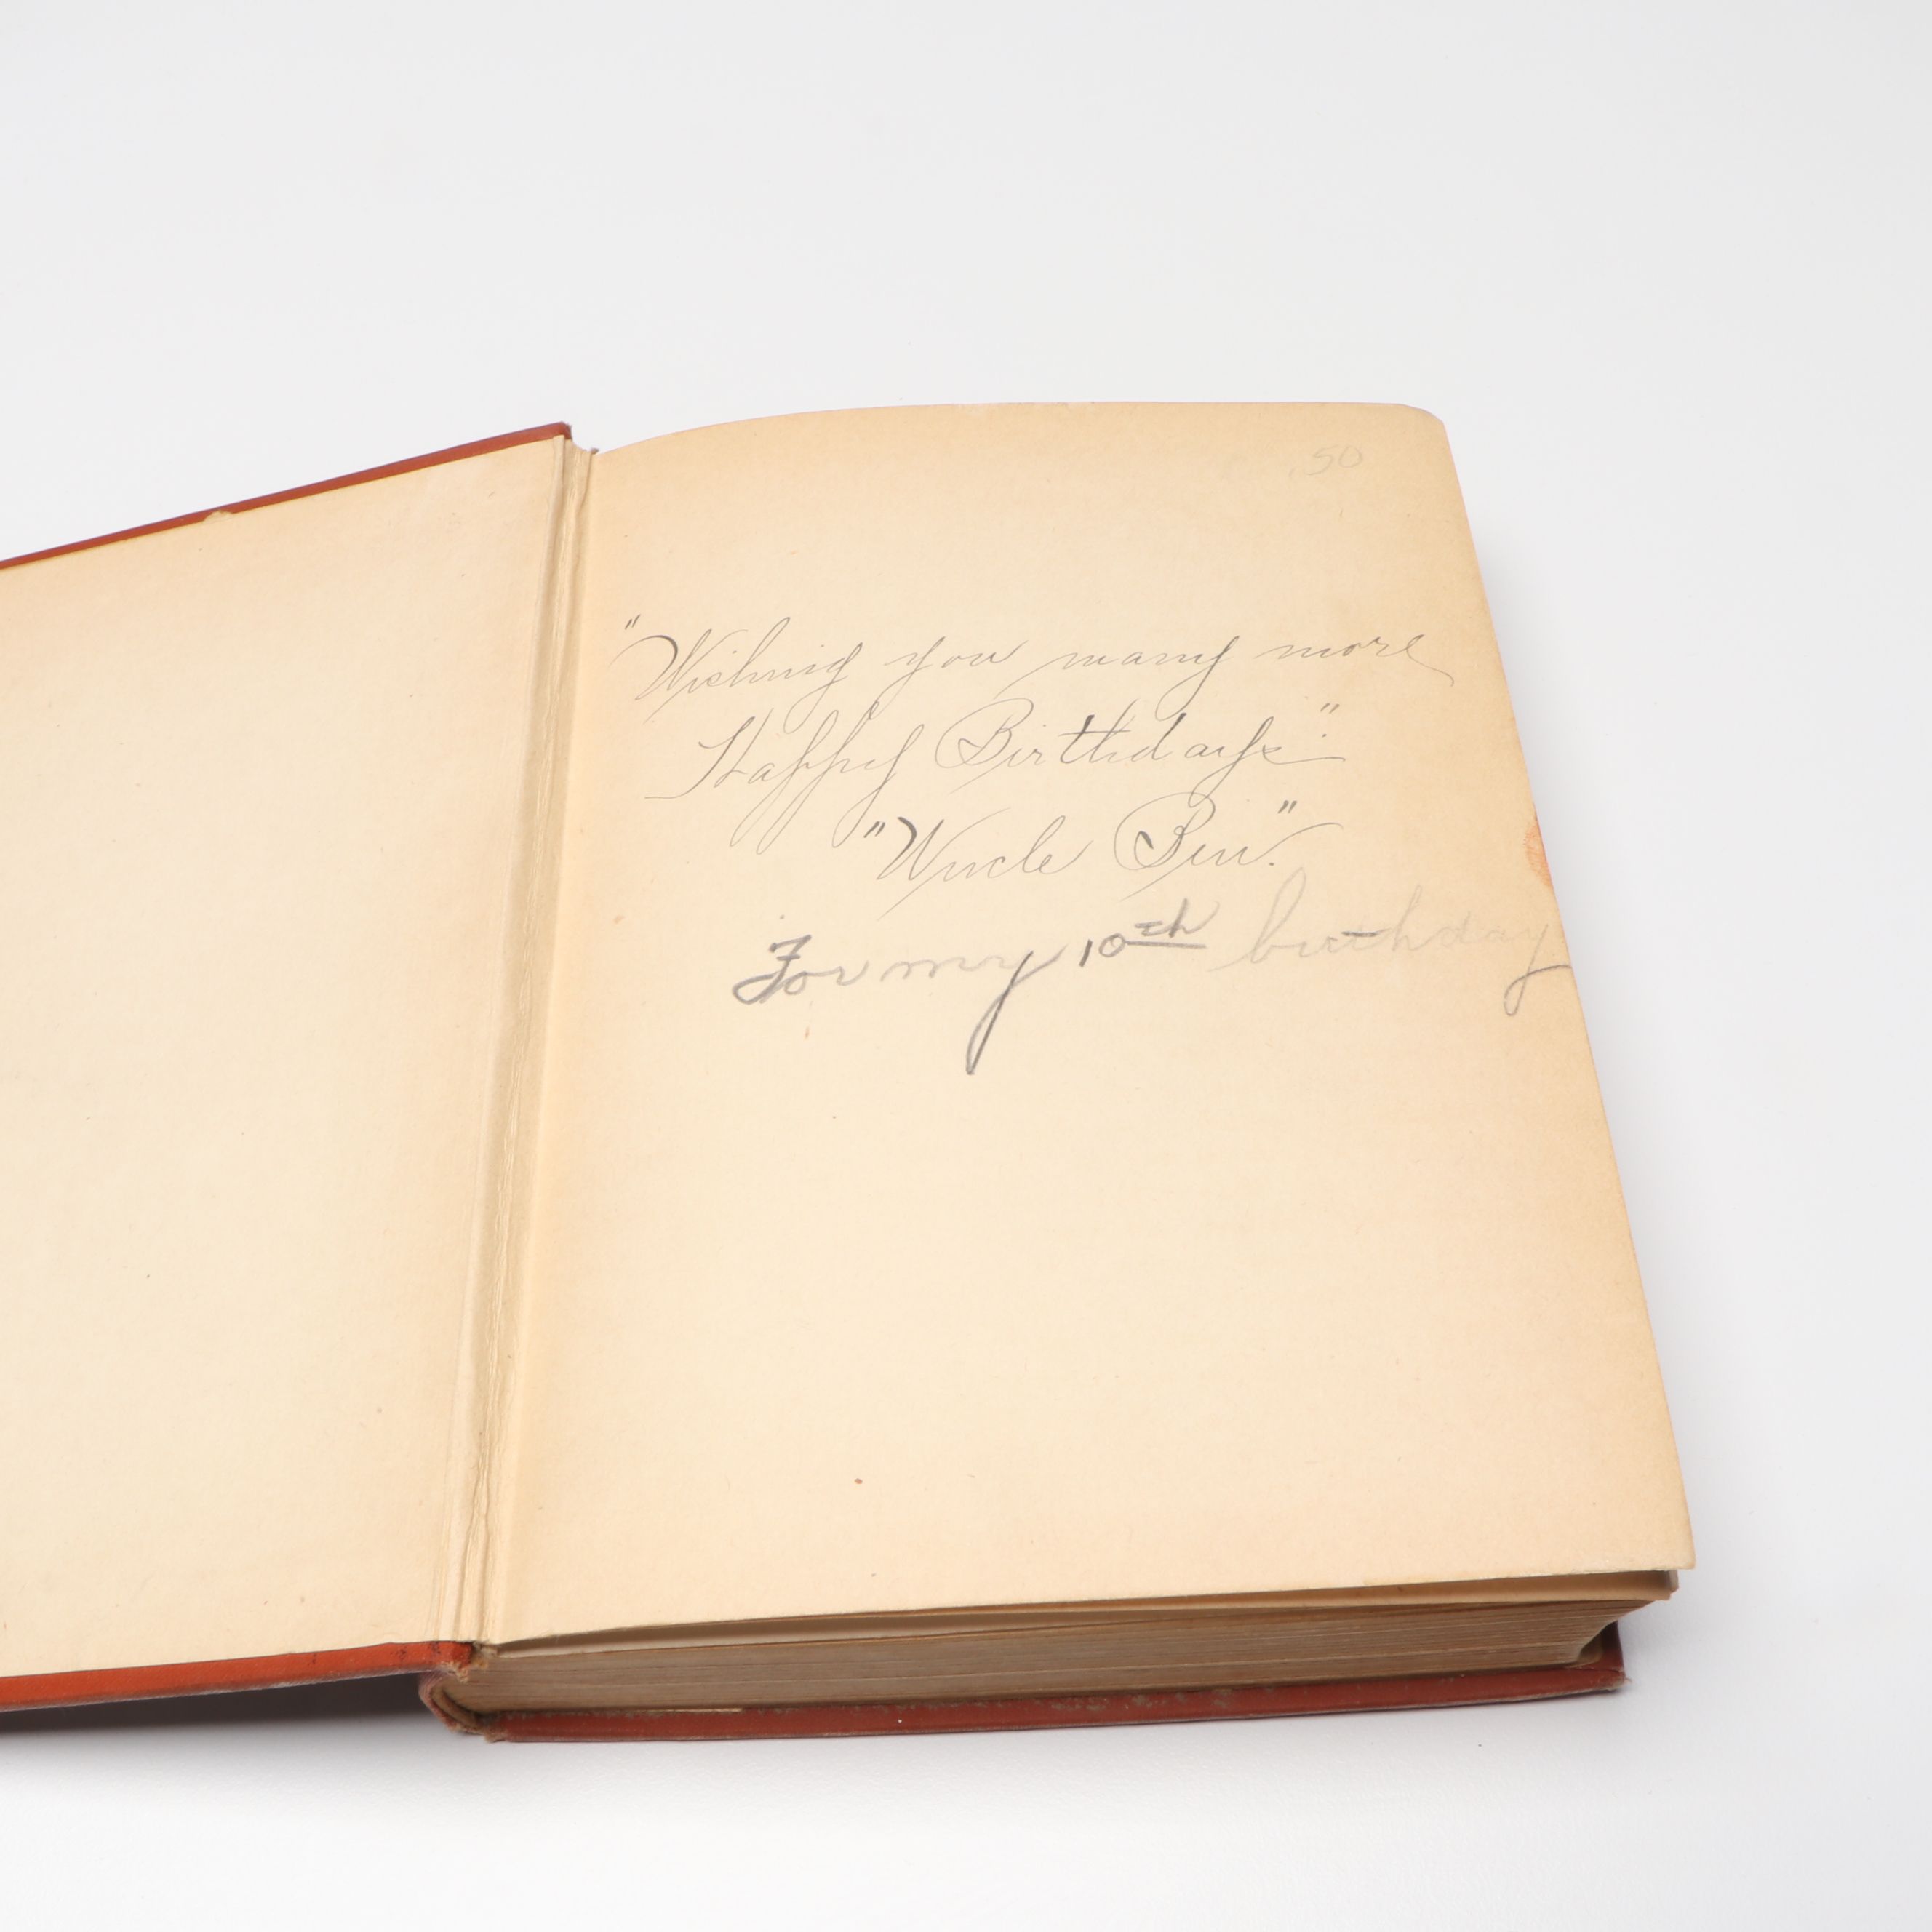 .50
"Wishing you many more
Happy Birthdays."
"Uncle Ben."
For my 10th birthday